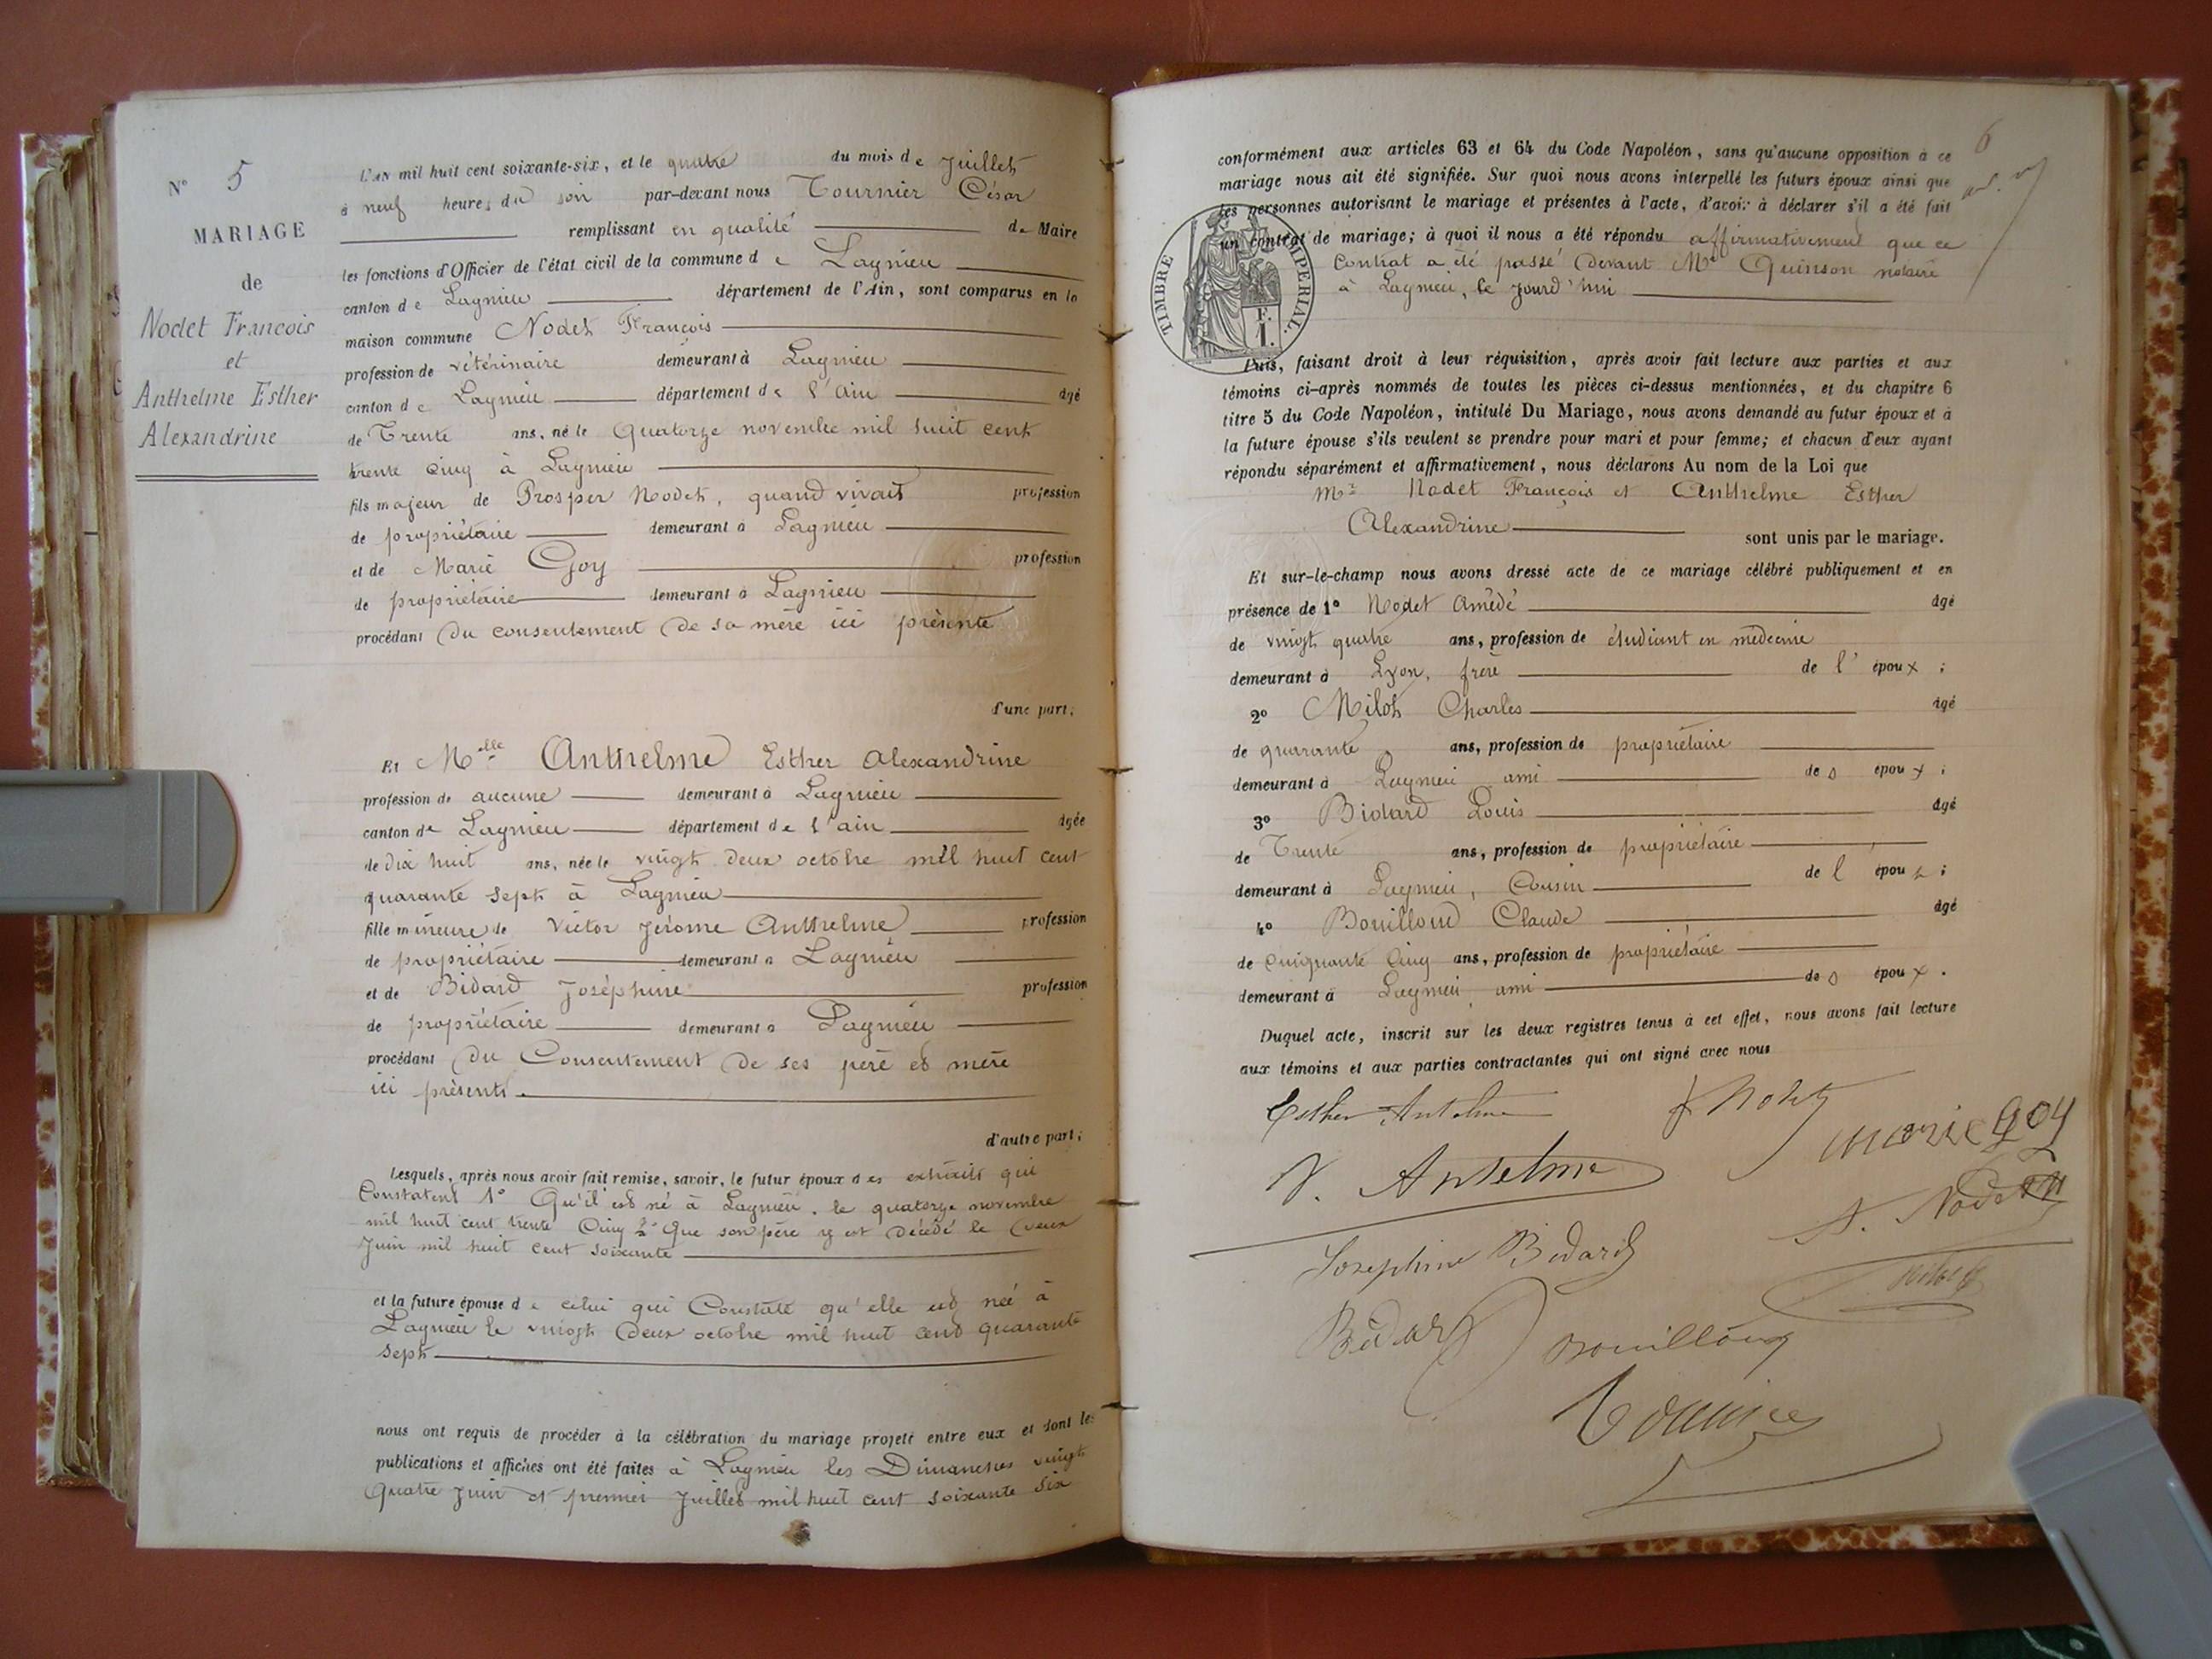 N° 5
MARIAGE
de
Nodet François
et
Anthelme Esther
Alexandrine
L'AN mil huit cent soixante-six, et le quatre du mois de Juillet
à neuf heures du soir par-devant nous Tournier César
remplissant en qualité de Maire
les fonctions d'Officier de l'état civil de la commune de Lagnieu
canton de Lagnieu département de l'Ain, sont comparus en la
maison commune Nodet François
profession de vétérinaire demeurant à Lagnieu
canton de Lagnieu département de l'ain âgé
de Trente ans, né le Quatorze novembre mil huit cent
trente cinq à Lagnieu
fils majeur de Prosper Nodet, quand vivait profession
de propriétaire demeurant à Lagnieu
et de Marie Goy profession
de propriétaire demeurant à Lagnieu
procédant du consentement de sa mère ici présente
d'une part;
Et Melle Anthelme Esther Alexandrine
profession de aucune demeurant à Lagnieu
canton de Lagnieu département de l'ain âgée
de dix huit ans, née le vingt deux octobre mil huit cent
quarante sept à Lagnieu
fille mineure de Victor Jérome Anthelme profession
de propriétaire demeurant à Lagnieu
et de Bidard Joséphine profession
de propriétaire demeurant à Lagnieu
procédant du Consentement de ses père et mère
ici présents.
d'autre part;
Lesquels, après nous avoir fait remise, savoir, le futur époux des extraits qui
Constatent 1° Qu'il est né à Lagnieu, le quatorze novembre
mil huit cent trente Cinq 2° Que son père y est décédé le deux
Juin mil huit cent soixante
et la future épouse de celui qui Constate qu'elle est née à
Lagnieu le vingt deux octobre mil huit cent quarante
sept
nous ont requis de procéder à la célébration du mariage projeté entre eux et dont les
publications et affiches ont été faites à Lagnieu les Dimanches vingt
Quatre Juin et premier Juillet mil huit cent soixante six
6
conformément aux articles 63 et 64 du Code Napoléon, sans qu'aucune opposition à ce
mariage nous ait été signifiée. Sur quoi nous avons interpellé les futurs époux ainsi que
les personnes autorisant le mariage et présentes à l'acte, d'avoir à déclarer s'il a été fait
un contrat de mariage; à quoi il nous a été répondu affirmativement que ce
Contrat a été passé devant Me Quinson notaire
à Lagnieu, ce jourd'hui
TIMBRE IMPERIAL.
F.
1.
Puis, faisant droit à leur réquisition, après avoir fait lecture aux parties et aux
témoins ci-après nommés de toutes les pièces ci-dessus mentionnées, et du chapitre 6
titre 5 du Code Napoléon, intitulé Du Mariage, nous avons demandé au futur époux et à
la future épouse s'ils veulent se prendre pour mari et pour femme; et chacun d'eux ayant
répondu séparément et affirmativement, nous déclarons Au nom de la Loi que
Mr Nodet François et Anthelme Esther
Alexandrine sont unis par le mariage.
Et sur-le-champ nous avons dressé acte de ce mariage célébré publiquement et en
présence de 1° Nodet Amédé âgé
de vingt quatre ans, profession de étudiant en médecine
demeurant à Lyon, frère de l'époux;
2° Milot Charles âgé
de quarante ans, profession de propriétaire
demeurant à Lagnieu ami des époux;
3° Bidard Louis âgé
de Trente ans, profession de propriétaire
demeurant à Lagnieu, Cousin de l épou ;
4° Bouilloud Claude âgé
de cinquante Cinq ans, profession de propriétaire
demeurant à Lagnieu ami des époux.
Duquel acte, inscrit sur les deux registres tenus à cet effet, nous avons fait lecture
aux témoins et aux parties contractantes qui ont signé avec nous
Esther Antelme f Nodet
marie goy
V. Anselme
A. Nodet
Josephine Bidard
Milot
Bidard Bouilloud
Tournier